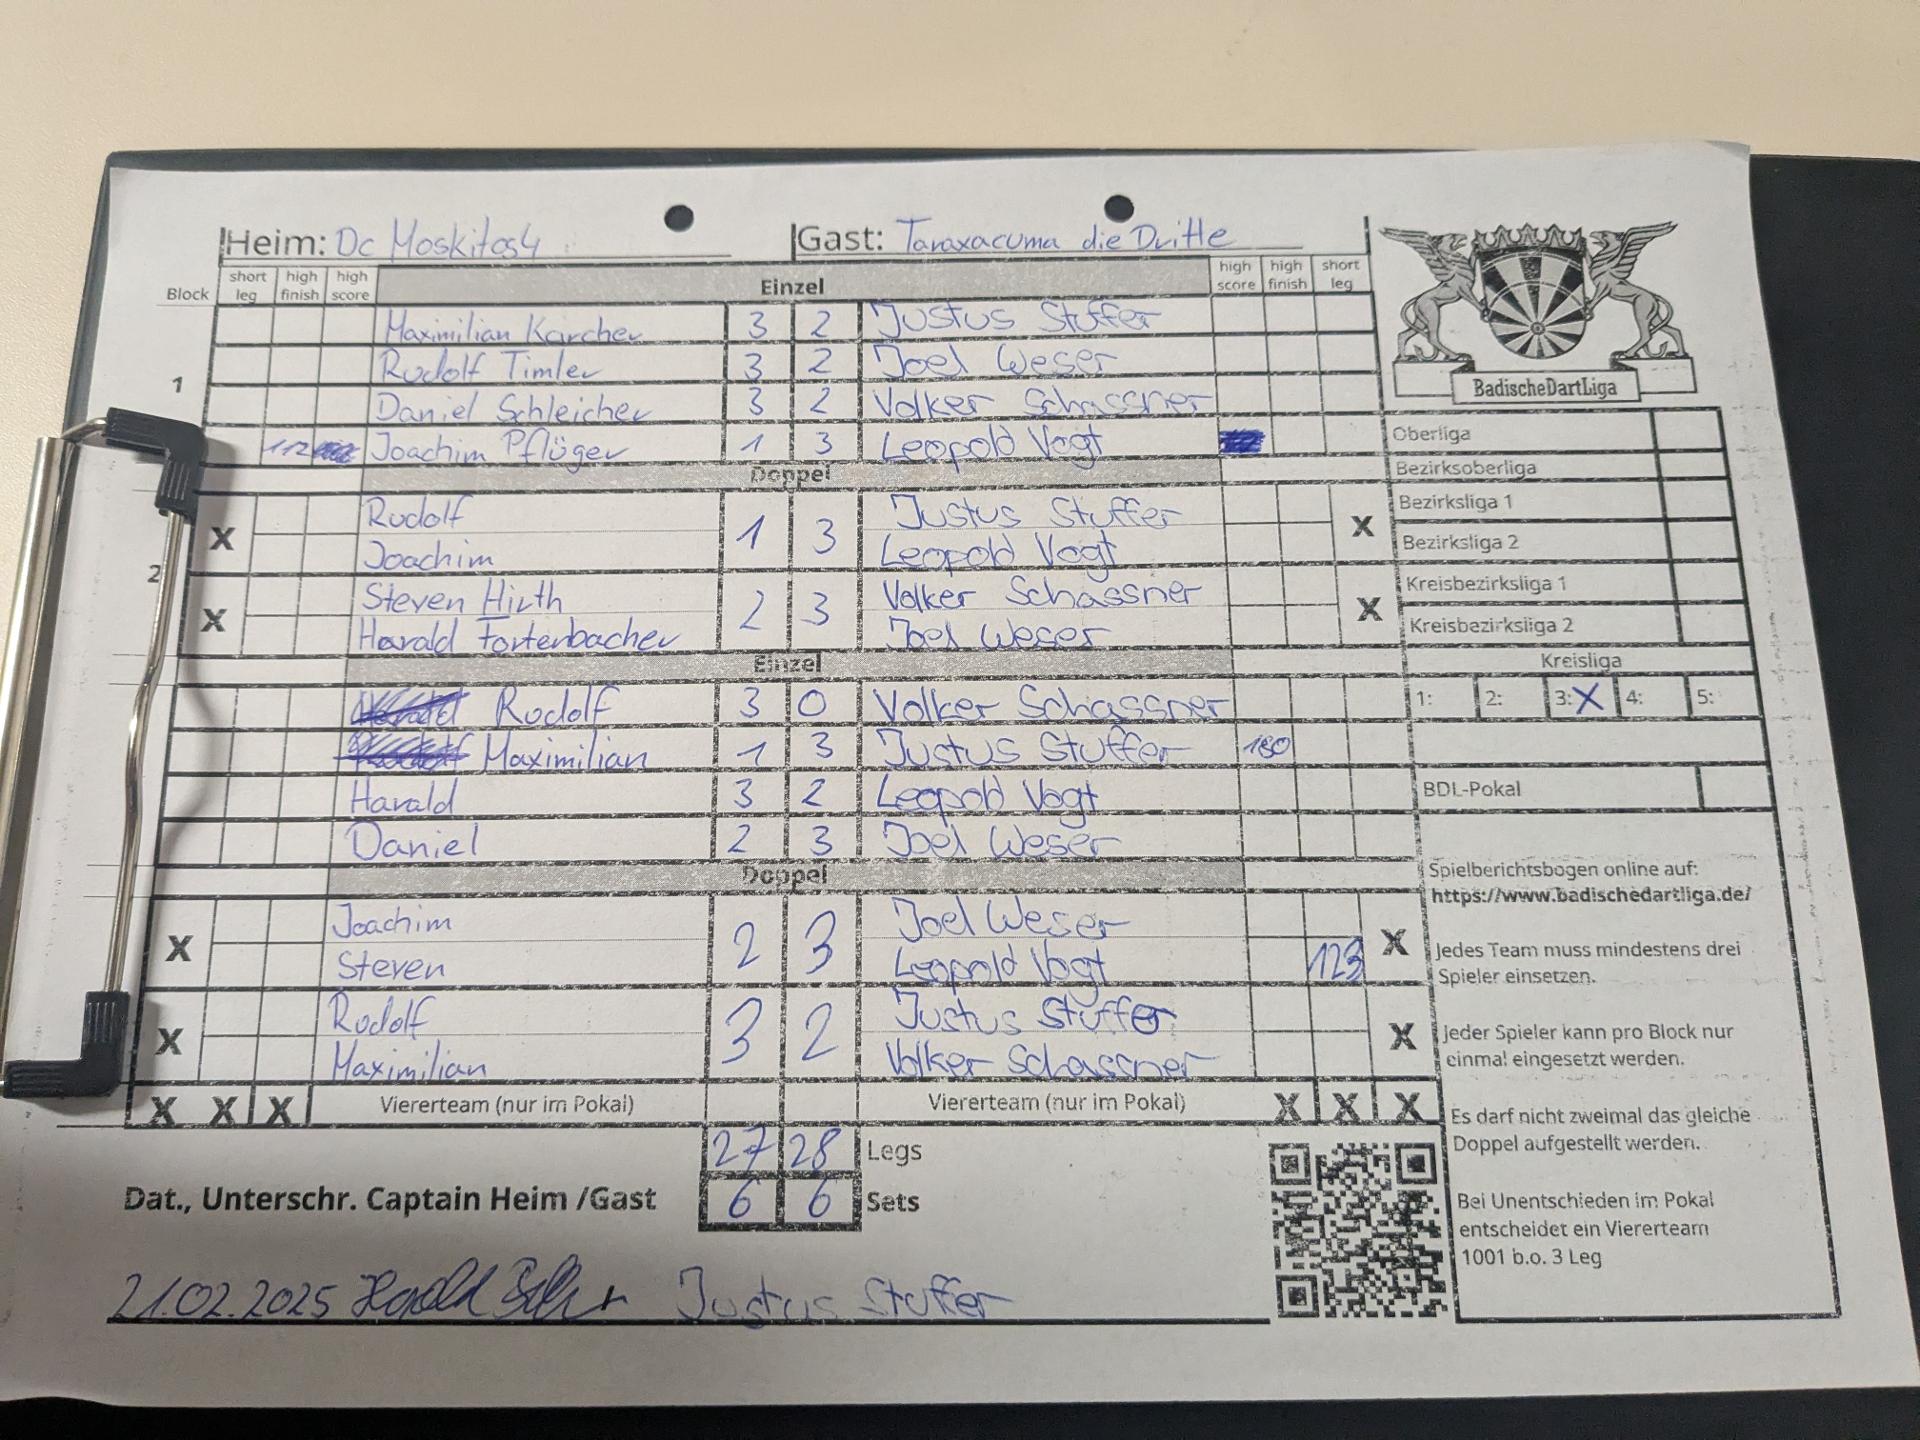 Heim: Dc Moskitos4 Gast: Taraxacuma die Dritte
Block short leg high finish high score Einzel high score high finish short leg
Maximilian Karcher 3 2 Justus Stuffer
Rudolf Timler 3 2 Joel Weser
1
Daniel Schleicher 3 2 Volker Schassner
112 Joachim Pflüger 1 3 Leopold Vogt
Doppel
X Rudolf 1 3 Justus Stuffer X
Joachim Leopold Vogt
2
X Steven Hirth 2 3 Volker Schassner X
Harald Fortenbacher Joel Weser
Einzel
Rudolf 3 0 Volker Schassner
Maximilian 1 3 Justus Stuffer 180
Harald 3 2 Leopold Vogt
Daniel 2 3 Joel Weser
Doppel
X Joachim 2 3 Joel Weser X
Steven Leopold Vogt 123
X Rudolf 3 2 Justus Stuffer X
Maximilian Volker Schassner
X X X Viererteam (nur im Pokal) Viererteam (nur im Pokal) X X X
27 28 Legs
Dat., Unterschr. Captain Heim /Gast 6 6 Sets
21.02.2025 Harald Justus Stuffer
BadischeDartLiga
Oberliga
Bezirksoberliga
Bezirksliga 1
Bezirksliga 2
Kreisbezirksliga 1
Kreisbezirksliga 2
Kreisliga
1: 2: 3: X 4: 5:
BDL-Pokal
Spielberichtsbogen online auf:
https://www.badischedartliga.de/
Jedes Team muss mindestens drei
Spieler einsetzen.
Jeder Spieler kann pro Block nur
einmal eingesetzt werden.
Es darf nicht zweimal das gleiche
Doppel aufgestellt werden.
Bei Unentschieden im Pokal
entscheidet ein Viererteam
1001 b.o. 3 Leg